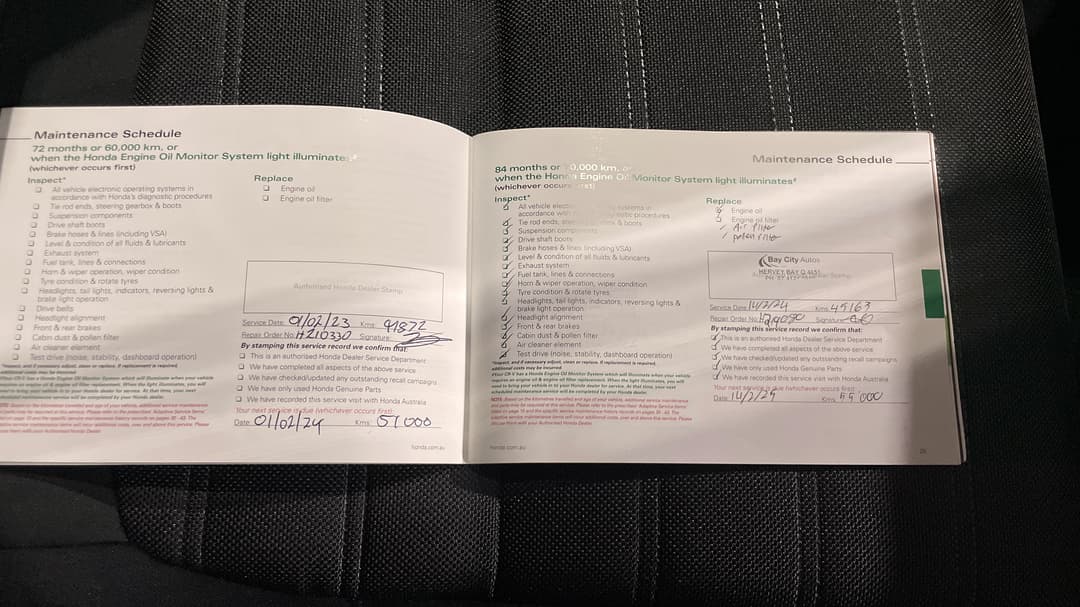 Maintenance Schedule
72 months or 60,000 km, or
when the Honda Engine Oil Monitor System light illuminates
(whichever occurs first)
Inspect*
All vehicle electronic operating systems in
accordance with Honda's diagnostic procedures
Tie rod ends, steering gearbox & boots
Suspension components
Drive shaft boots
Brake hoses & lines (including VSA)
Level & condition of all fluids & lubricants
Exhaust system
Fuel tank, lines & connections
Horn & wiper operation, wiper condition
Tyre condition & rotate tyres
Headlights, tail lights, indicators, reversing lights &
brake light operation
Drive belts
Headlight alignment
Front & rear brakes
Cabin dust & pollen filter
Air cleaner element
Test drive (noise, stability, dashboard operation)
Replace
Engine oil
Engine oil filter
Authorised Honda Dealer Stamp
Service Date: 01/02/23 Kms: 41872
Repair Order No: H210330 Signature:
By stamping this service record we confirm that:
This is an authorised Honda Dealer Service Department
We have completed all aspects of the above service
We have checked/updated any outstanding recall campaigns
We have only used Honda Genuine Parts
We have recorded this service visit with Honda Australia
Your next service is due (whichever occurs first):
Date: 01/02/24 Kms: 51000
honda.com.au
Maintenance Schedule
84 months or 0,000 km, or
when the Honda Engine Oil Monitor System light illuminates
(whichever occurs first)
Inspect*
All vehicle electronic systems in
accordance with procedures
Tie rod ends, & boots
Suspension components
Drive shaft boots
Brake hoses & lines (including VSA)
Level & condition of all fluids & lubricants
Exhaust system
Fuel tank, lines & connections
Horn & wiper operation, wiper condition
Tyre condition & rotate tyres
Headlights, tail lights, indicators, reversing lights &
brake light operation
Headlight alignment
Front & rear brakes
Cabin dust & pollen filter
Air cleaner element
Test drive (noise, stability, dashboard operation)
Replace
Engine oil
Engine oil filter
Air filter
pollen filter
Bay City Autos
HERVEY BAY Q 4655
Service Date: 14/2/24 Kms: 45163
Repair Order No: Signature:
By stamping this service record we confirm that:
This is an authorised Honda Dealer Service Department
We have completed all aspects of the above service
We have checked/updated any outstanding recall campaigns
We have only used Honda Genuine Parts
We have recorded this service visit with Honda Australia
Your next service is due (whichever occurs first):
Date: 14/2/25 Kms: 55 000
honda.com.au